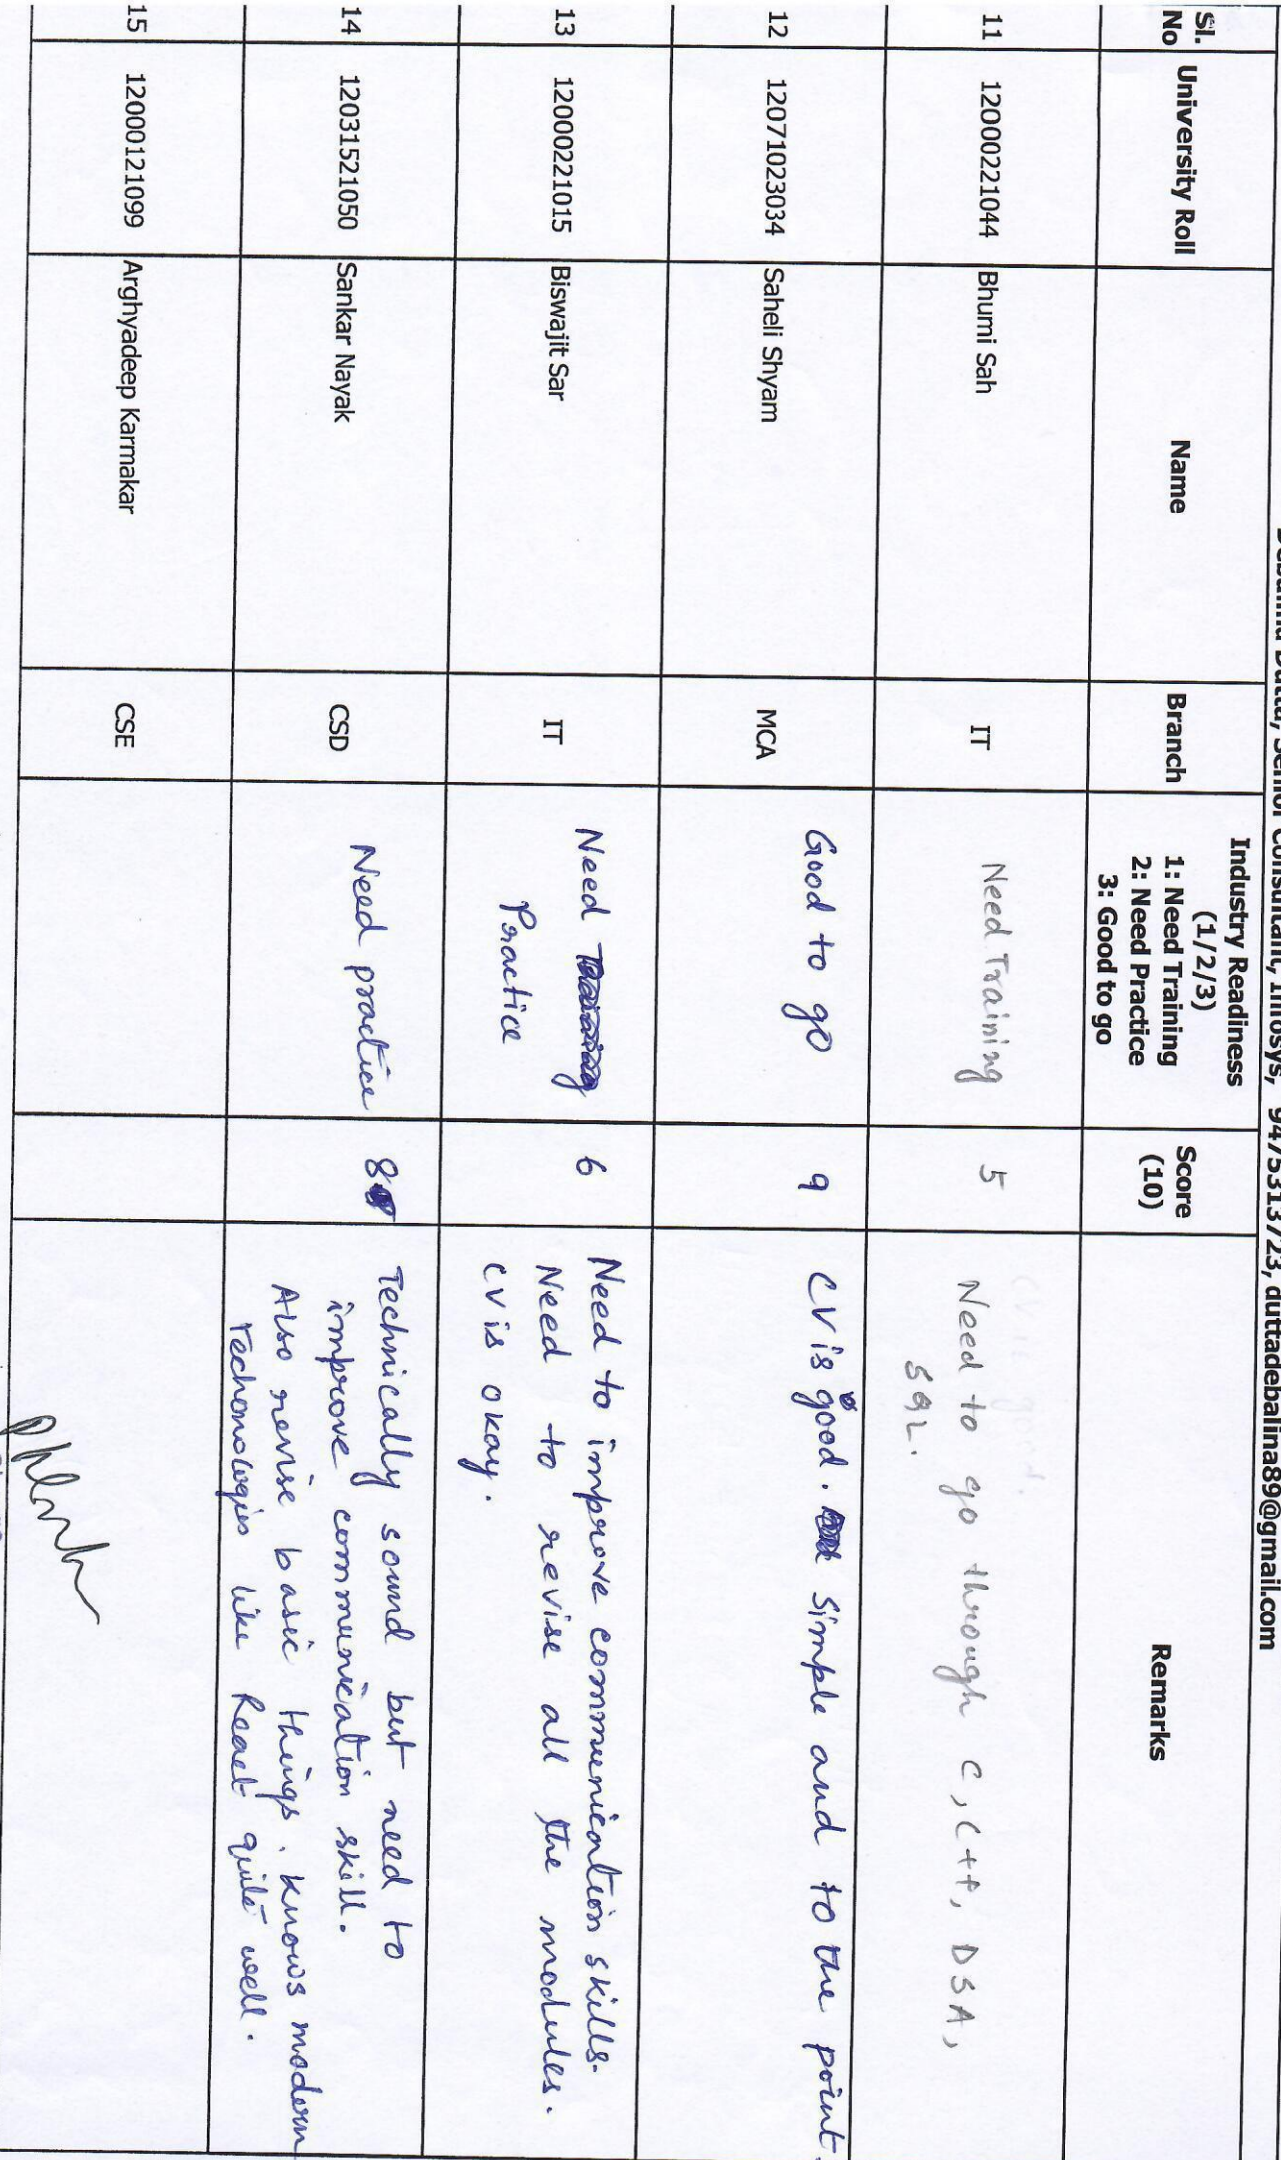 Senior Consultant, Infosys, 9475313723, duttadebalina89@gmail.com
Sl. No University Roll Name Branch Industry Readiness (1/2/3) 1: Need Training 2: Need Practice 3: Good to go Score (10) Remarks
11 12000221044 Bhumi Sah IT Need Training 5 Need to go through C, C++, DSA,
SQL.
12 12071023034 Saheli Shyam MCA Good to go 9 CV is good. Simple and to the point.
13 12000221015 Biswajit Sar IT Need Practice 6 Need to improve communication skills.
Need to revise all the modules.
CV is okay.
14 12031521050 Sankar Nayak CSD Need practice 8 Technically sound but need to
improve communication skill.
Also revise basic things. Knows modern
Techonologies like React quite well.
15 12000121099 Arghyadeep Karmakar CSE